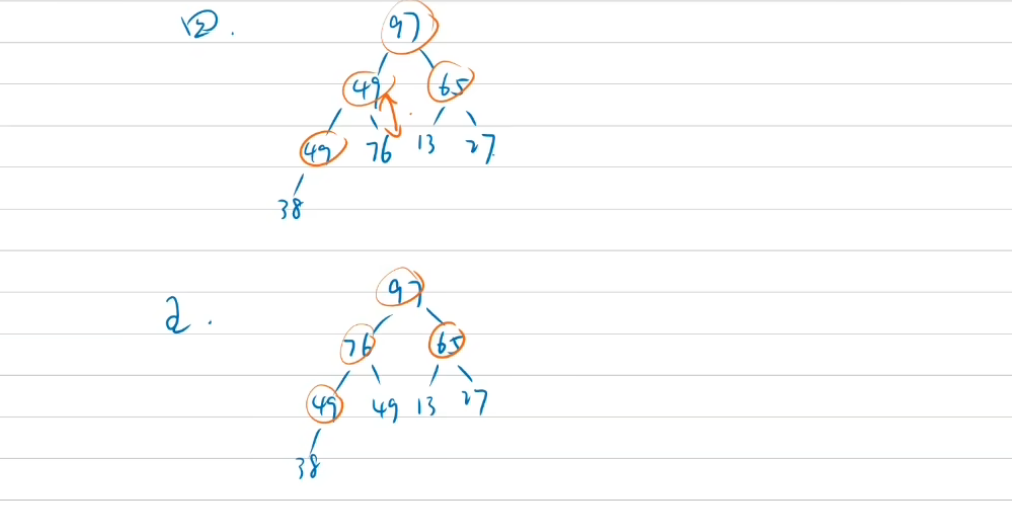 ⑫.
97
49 65
49 76 13 27
38
97
2.
76 65
49 49 13 27
38